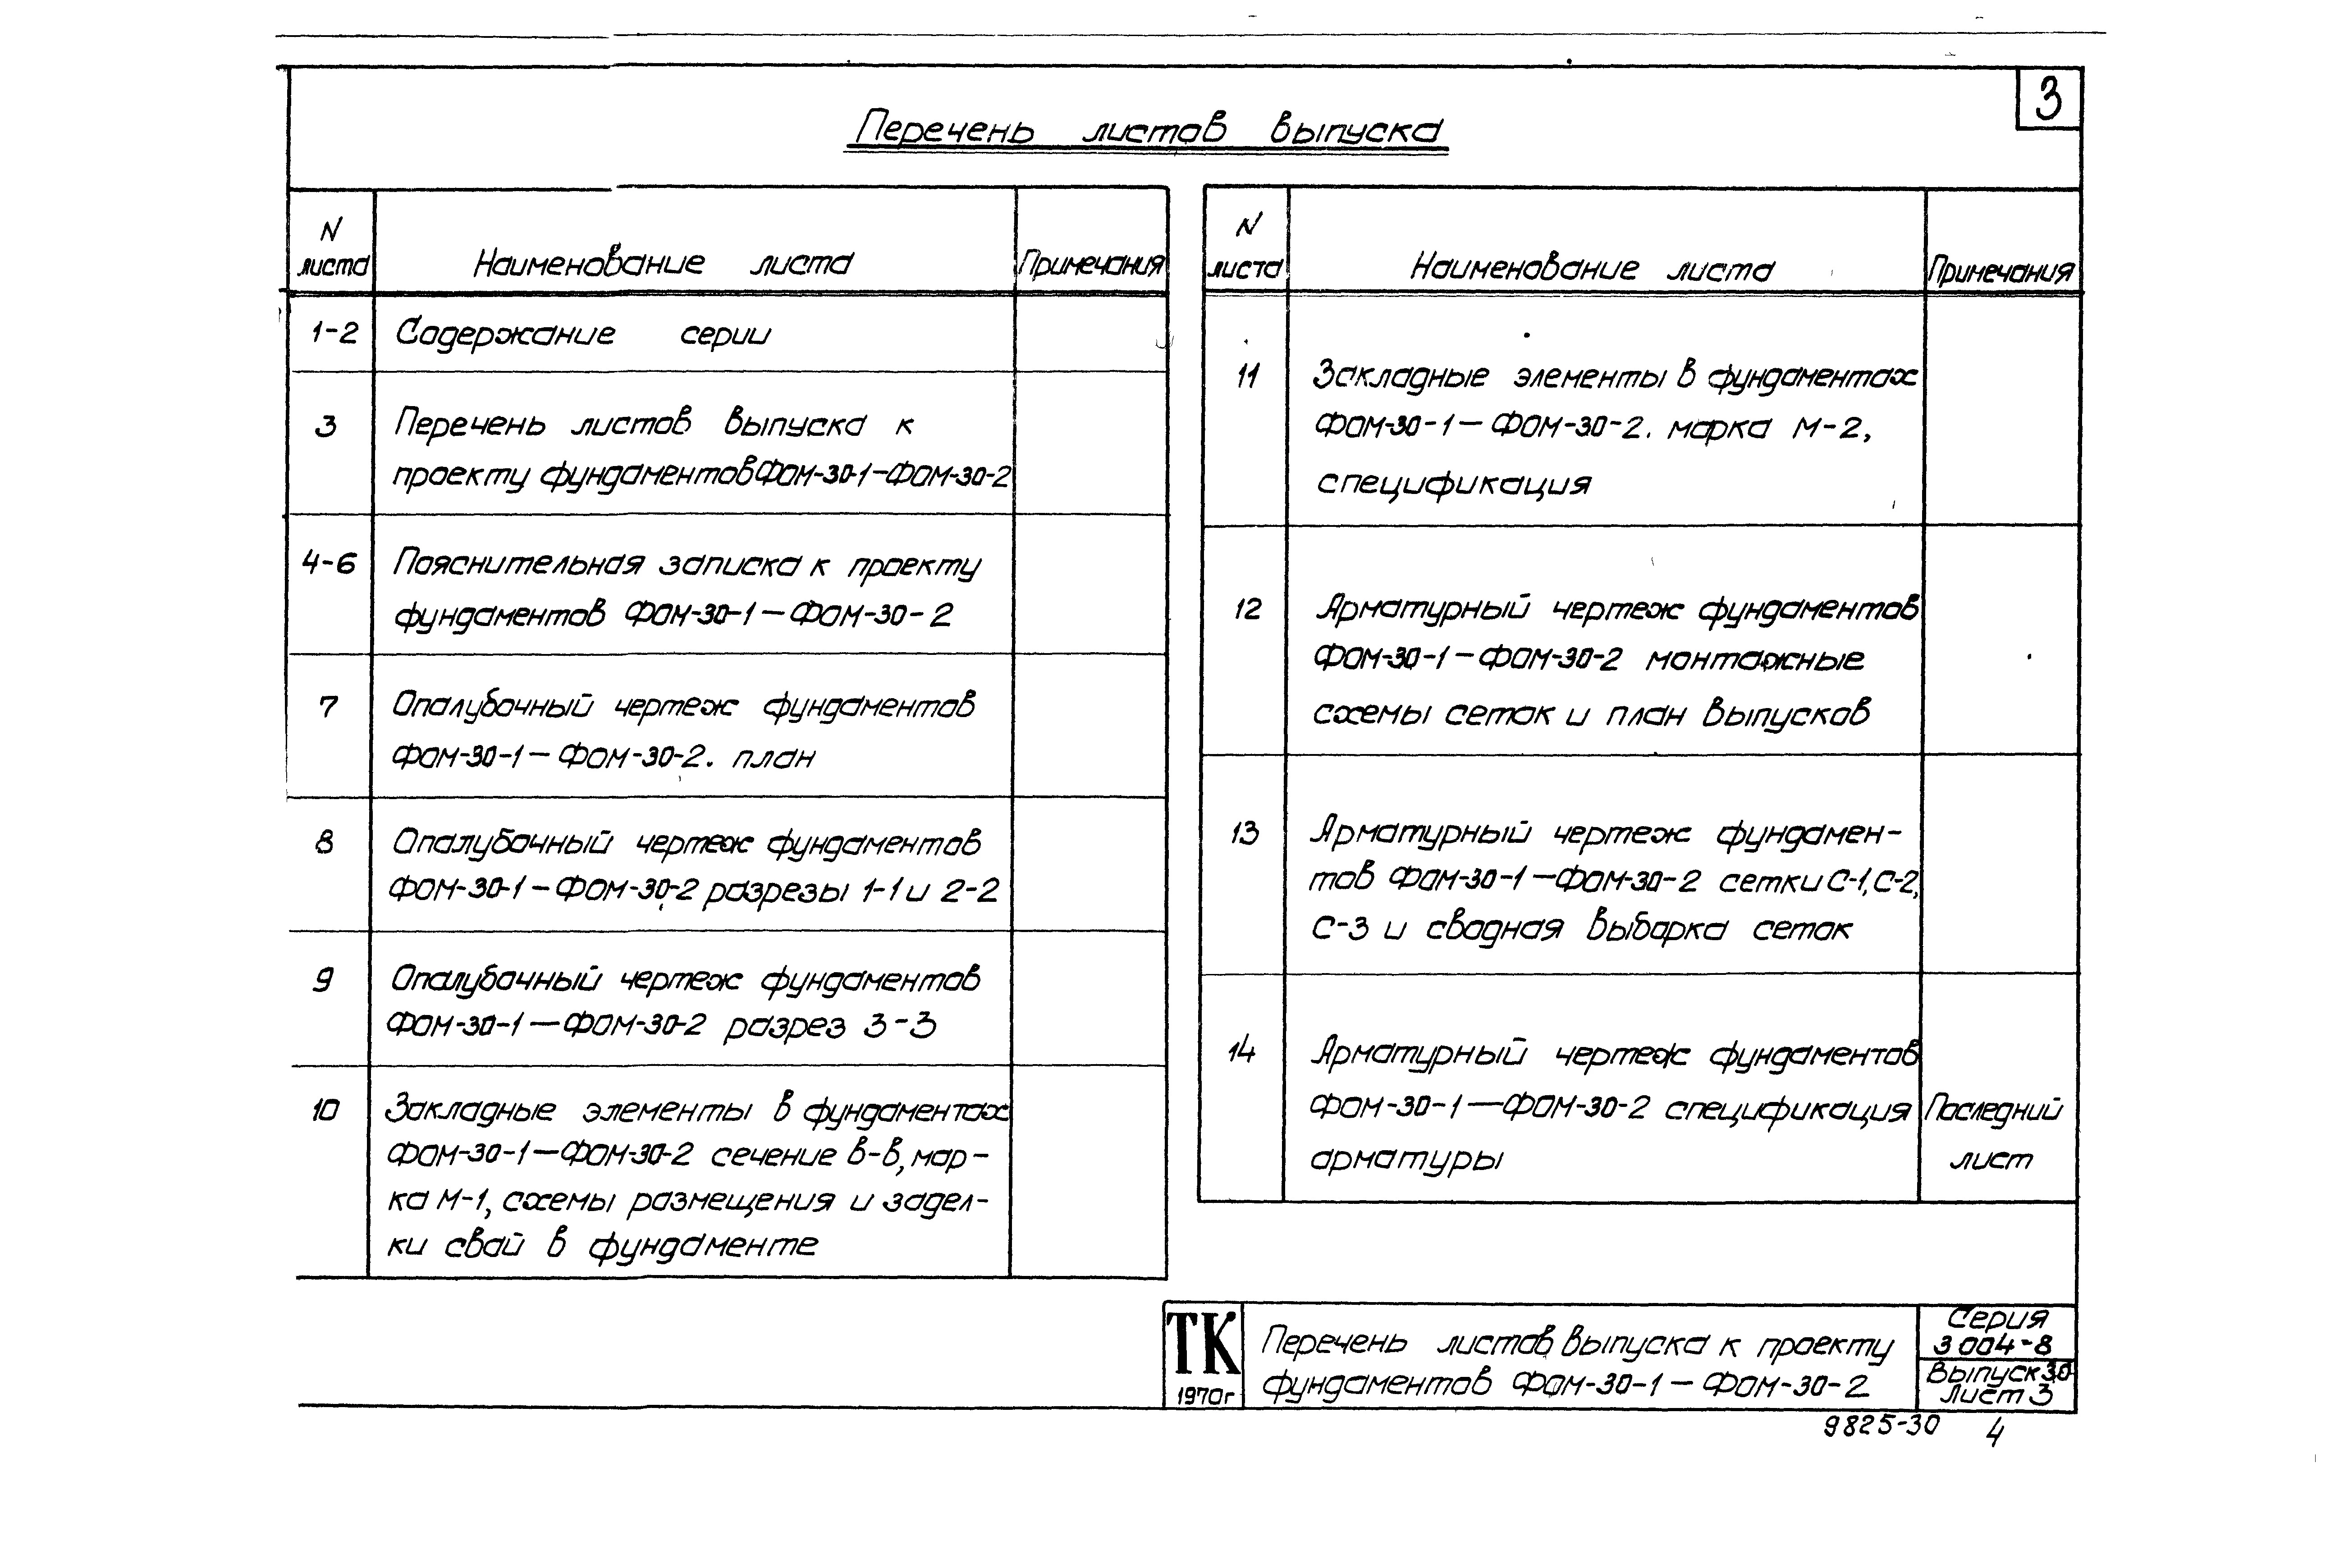 3
Перечень листов выпуска
N
листа
Наименование листа
Примечания
1-2
Содержание серии
3
Перечень листов выпуска к
проекту фундаментов ФОМ-30-1—ФОМ-30-2
4-6
Пояснительная записка к проекту
фундаментов ФОМ-30-1—ФОМ-30-2
7
Опалубочный чертеж фундаментов
ФОМ-30-1—ФОМ-30-2. план
8
Опалубочный чертеж фундаментов
ФОМ-30-1—ФОМ-30-2 разрезы 1-1 и 2-2
9
Опалубочный чертеж фундаментов
ФОМ-30-1—ФОМ-30-2 разрез 3-3
10
Закладные элементы в фундаментах
ФОМ-30-1—ФОМ-30-2 сечение в-в, мар-
ка М-1, схемы размещения и задел-
ки свай в фундаменте
N
листа
Наименование листа
Примечания
11
Закладные элементы в фундаментах
ФОМ-30-1—ФОМ-30-2. марка М-2,
спецификация
12
Арматурный чертеж фундаментов
ФОМ-30-1—ФОМ-30-2 монтажные
схемы сеток и план выпусков
13
Арматурный чертеж фундамен-
тов ФОМ-30-1—ФОМ-30-2 сетки С-1, С-2,
С-3 и сводная выборка сеток
14
Арматурный чертеж фундаментов
ФОМ-30-1—ФОМ-30-2 спецификация
арматуры
Последний
лист
ТК
1970г
Перечень листов выпуска к проекту
фундаментов ФОМ-30-1—ФОМ-30-2
Серия
3 004-8
Выпуск 30
Лист 3
9825-30 4